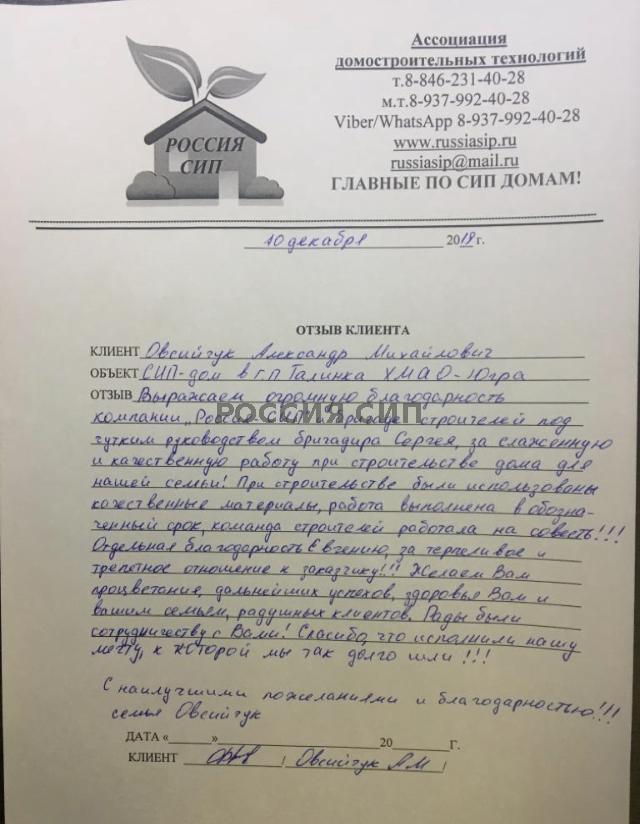 Ассоциация
домостроительных технологий
т.8-846-231-40-28
м.т.8-937-992-40-28
Viber/WhatsApp 8-937-992-40-28
www.russiasip.ru
russiasip@mail.ru
ГЛАВНЫЕ ПО СИП ДОМАМ!
РОССИЯ
СИП
10 декабря 2018 г.
ОТЗЫВ КЛИЕНТА
КЛИЕНТ Овсийчук Александр Михайлович
ОБЪЕКТ СИП-дом в г.п Талинка ХМАО-Югра
ОТЗЫВ Выражаем огромную благодарность
РОССИЯ СИП
компании „Россия СИП" и бригаде строителей под
чутким руководством бригадира Сергея, за слаженную
и качественную работу при строительстве дома для
нашей семьи! При строительстве были использованы
качественные материалы, работа выполнена в обозна-
ченный срок, команда строителей работала на совесть!!!
Отдельная благодарность Евгению, за терпеливое и
трепетное отношение к заказчику!!! Желаем Вам
процветания, дальнейших успехов, здоровья Вам и
вашим семьям, радушных клиентов. Рады были
сотрудничеству с Вами! Спасибо, что исполнили нашу
мечту, к которой мы так долго шли !!!
С наилучшими пожеланиями и благодарностью!!!
семья Овсийчук
ДАТА «____»____ 20____г.
КЛИЕНТ / Овсийчук АМ /